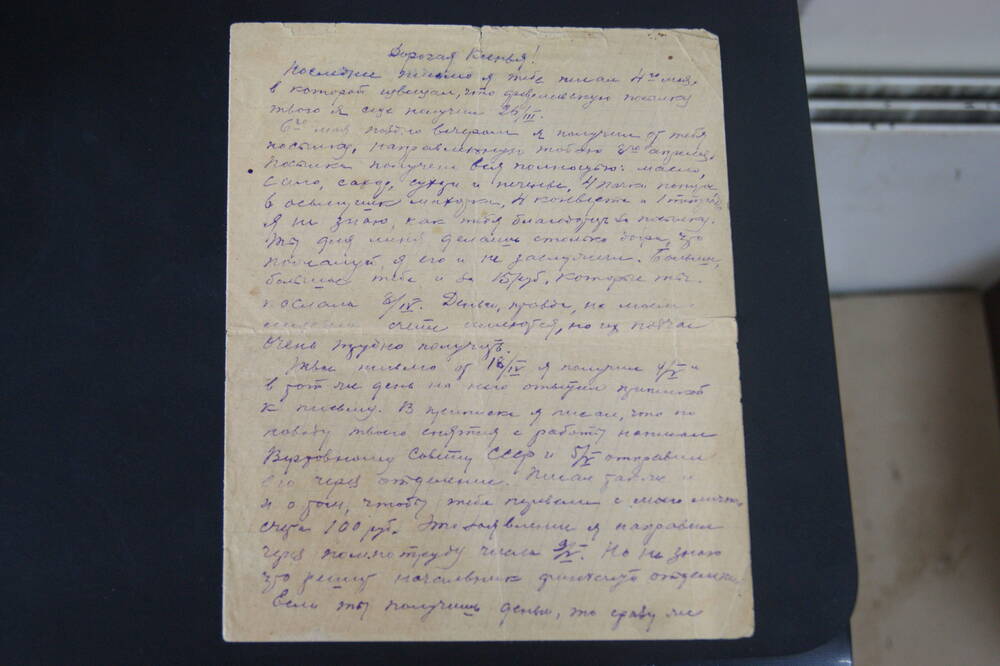 Дорогая Ксенья!
Последнее письмо я тебе писал 4го мая,
в которой извещал, что февральскую посылку
твою я еще получил 26/III.
6го мая поздно вечером я получил от тебя
посылку, направленную тобою 8го апреля.
Посылка получена вся полностью: масло,
сало, сахар, сухари и печенье, 4 пачки
в осьмушек махорка, 4 конверта и 1
Я не знаю, как тебя благодарить за посылку.
Ты для меня делаешь столько добра, что
пожалуй, я его и не заслужил. Большое,
большое тебе и за 15 руб, которые ты
послала 8/IV. Деньги, правда, на моем
счету имеются, но их подчас
очень трудно получить.
Твое письмо от 18/IV я получил 4/V и
в тот же день на него ответил припиской
к письму. В приписке я писал, что по
поводу твоего снятия с работы написал
Верховному Совету СССР и 5/V отправил
его через отделение. Писал также и
и о том, чтобы тебе перевели с моего личн.
счета 100 руб. Это заявление я направил
через числа 9/V. Но не знаю
что решит начальник финского отделения
Если ты получишь деньги, то сразу же